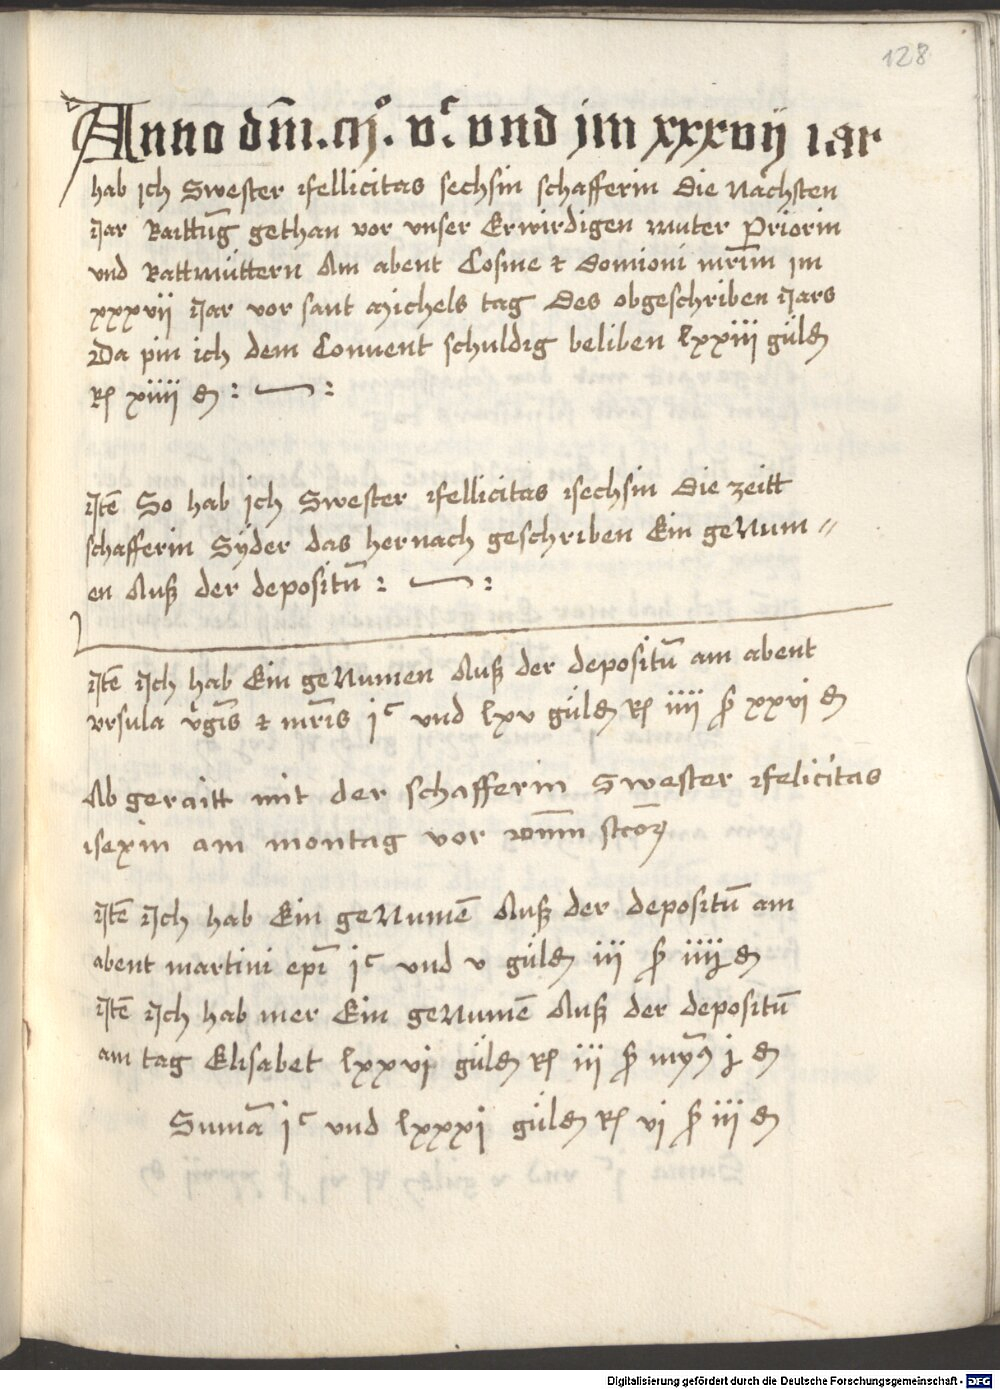 128
Anno dm̄. m̊. vᶜ. vnd jm xxxvij iar
hab ich Swester ffellicitas sechsin schafferin die nachsten
Jar Raittūg gethan vor vnser Erwirdigen muter Priorin
vnd Rattmüttern Am abent Cosme et domioni mrīm im
xxxvii Jar vor sant michels tag des obgeschriben Jars
Da pin ich dem Conuent schuldig beliben lxxiii güld
R xiiii d : — :
Itē So hab ich Swester ffellicitas sechsin die zeitt
schafferin Syder das hernach geschriben Ein genum=
en Auß der depositū : — :
Itē Ich hab Ein genumen Auß der depositū am abent
vrsula v̄gīs et mr̄is iᶜ vnd lxv güld R iiii ß xxvi d
Ab geraitt mit der schafferin Swester ffelicitas
sexin am montag vor om̄m sctōꝝ
Itē Ich hab Ein genumē Auß der depositū am
abent martini epī iᶜ vnd v güld iii ß iiii d
Itē Ich hab mer Ein genumē Auß der depositū
am tag Elisabet lxxvi güld R iii ß j d
Sumā iᶜ vnd lxxxi güld R vi ß iii d
Digitalisierung gefördert durch die Deutsche Forschungsgemeinschaft - DFG